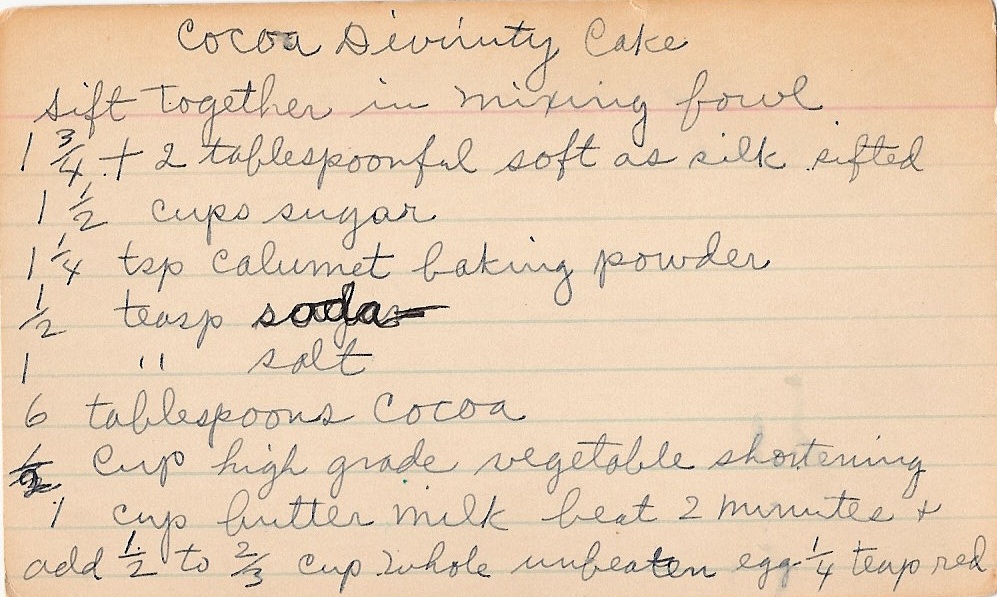 Cocoa Divinity Cake
sift together in mixing bowl
1 3/4 + 2 tablespoonful soft as silk sifted
1 1/2 cups sugar
1 1/4 tsp calumet baking powder
1/2 teasp soda
1 " salt
6 tablespoons Cocoa
cup high grade vegetable shortening
1 cup butter milk beat 2 minutes +
add 1/2 to 2/3 cup whole unbeaten egg 1/4 teasp red